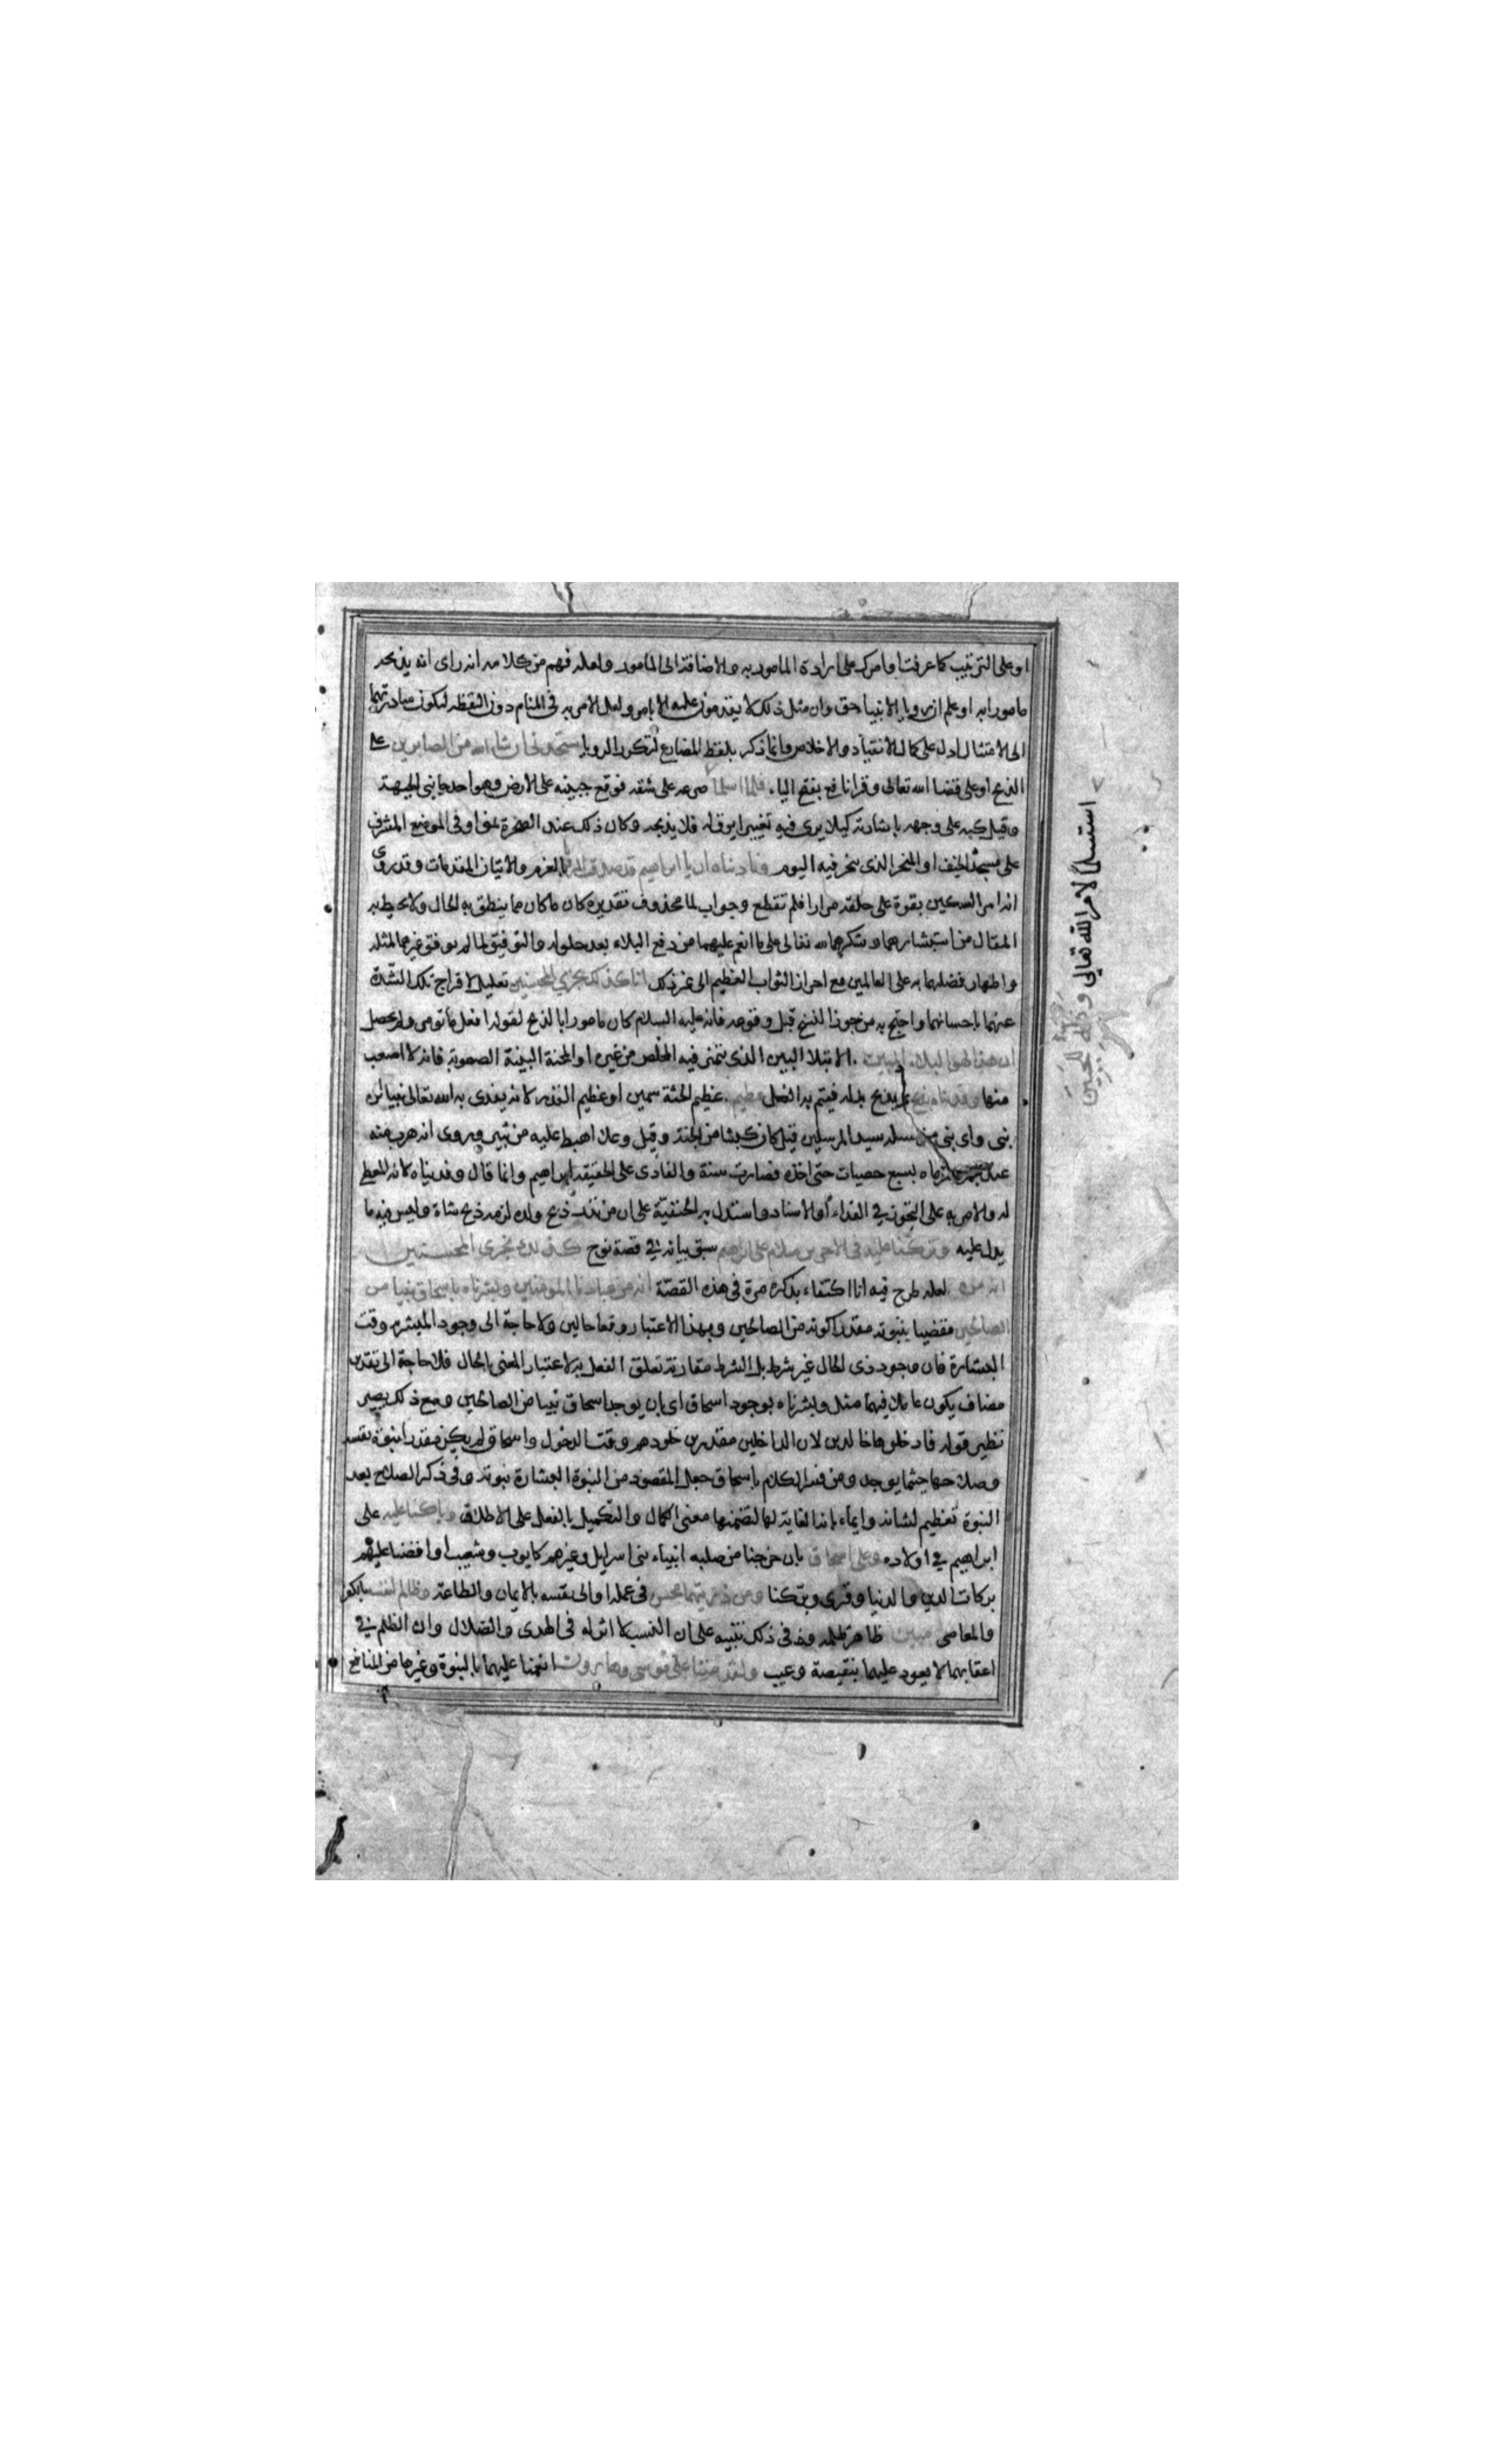 او على الترتيب كما عرفت او امرك على ارادة المامور به والاضافة الى المامور ولعله فهم من كلامه انه راى انه يذبحه
مامورا به او علم ان رويا الانبيا حق وان مثل ذلك لا يقدمون عليه الا بامر ولعل الامر به في المنام دون اليقظه لتكون مبادرتهما
الى الامتثال ادل على كمال الانقياد والاخلاص وانما ذكر بلفظ المضارع لتكرر الرويا ستجدني ان شاء الله من الصابرين على
الذبح او على قضا الله تعالى وقرا نافع بفتح اليا . فلما اسلما صرعه على شقه فوقع جبينه على الارض وهو احد جانبي الجبهة
وقيل كبه على وجهه باشارته كيلا يرى فيه تغييرا يرق له فلا يذبحه وكان ذلك عند الصخرة بمنى او في الموضع المشرف
على مسجد الخيف او المنحر الذى ينحر فيه اليوم وناديناه ان يا ابراهيم قد صدقت الرويا بالعزم والاتيان المقدمات وقد روى
انه امر السكين بقوة على حلقه مرارا فلم تقطع وجواب لما محذوف تقديره كان ما كان مما ينطق به الحال ولا يحيط به
المقال من استبشارهما وشكرهما لله تعالى على ما انعم عليهما من دفع البلاء بعد حلوله والتوفيق لما لم يوفق غيرهما لمثله
واظهار فضلهما به على العالمين مع احراز الثواب العظيم الى غير ذلك انا كذلك نجزي المحسنين تعليل لافراج تلك الشدة
عنهما باحسانهما واحتج به من جوز النسخ قبل وقوعه فانه عليه السلام كان مامورا بالذبح لقوله افعل ما تومر ولم يحصل
ان هذا لهو البلاء المبين . الابتلا البين الذى يتميز فيه المخلص من غيره او المحنة البينة الصعوبة فانه لا اصعب
منها وفديناه بذبح بما يذبح بدله فيتم به الفعل عظيم . عظيم الجثة سمين او عظيم القدر لانه يفدى به الله تعالى نبيا ابن
نبى واى نبى من نسله سيد المرسلين قيل كان كبشا من الجنة وقيل وعلا اهبط عليه من ثبير وروى انه هرب منه
عند الجمرة فرماه بسبع حصيات حتى اخذه فصارت سنة والفادى على الحقيقه ابراهيم وانما قال وفديناه لانه المعطي
له والامر به على التجوز في الفداء او الاسناد واستدل به الحنفية على ان من نذر ذبح ولده لزمه ذبح شاة وليس فيه ما
يدل عليه وتركنا عليه في الاخرين سلام على ابراهيم سبق بيانه في قصة نوح كذلك نجزى المحسنين
لعله طرح فيه انا اكتفاء بذكره مرة في هذه القصة انه من عبادنا المومنين وبشرناه باسحاق نبيا من
الصالحين مقضيا بنبوته مقدرا كونه من الصالحين وبهذا الاعتبار وقعا حالين ولا حاجة الى وجود المبشر به وقت
البشارة فان وجود ذى الحال غير شرط بل الشرط مقارنة تعلق الفعل به لاعتبار المعنى بالحال فلا حاجة الى تقدير
مضاف يكون عاملا فيهما مثل وبشرناه بوجود اسحاق اى بان يوجد اسحاق نبيا من الصالحين ومع ذلك يصير
نظير قوله فادخلوها خالدين لان الداخلين مقدرين خلودهم وقت الدخول واسحاق لم يكن مقدرا نبوة نفسه
وصلاحها حيثما يوجد ومن فسر الكلام باسحاق جعل المقصود من النبوة البشارة نبوته وفي ذكر الصلاح بعد
النبوة تعظيم لشانه وايماء بانه الغاية لها لتضمنها معنى الكمال والتكميل بالفعل على الاطلاق وباركنا عليه على
ابراهيم في اولاده وعلى اسحاق بان خرجنا من صلبه انبياء بنى اسرايل وغيرهم كايوب وشعيب او افضنا عليهم
بركات الدين والدنيا وقرى وبركنا ومن ذريتهما محسن في عمله او الى نفسه بالايمان والطاعة وظالم لنفسه بالكفر
والمعاصى مبين ظاهر ظلمه وفى ذلك تنبيه على ان النسب لا اثر له في الهدى والضلال وان الظلم في
اعقابهما لا يعود عليهما بنقيصة وعيب ولقد مننا على موسى وهارون انعمنا عليهما بالنبوة وغيرها من المنافع
استسلما لامر الله تعالى وتله للجبين